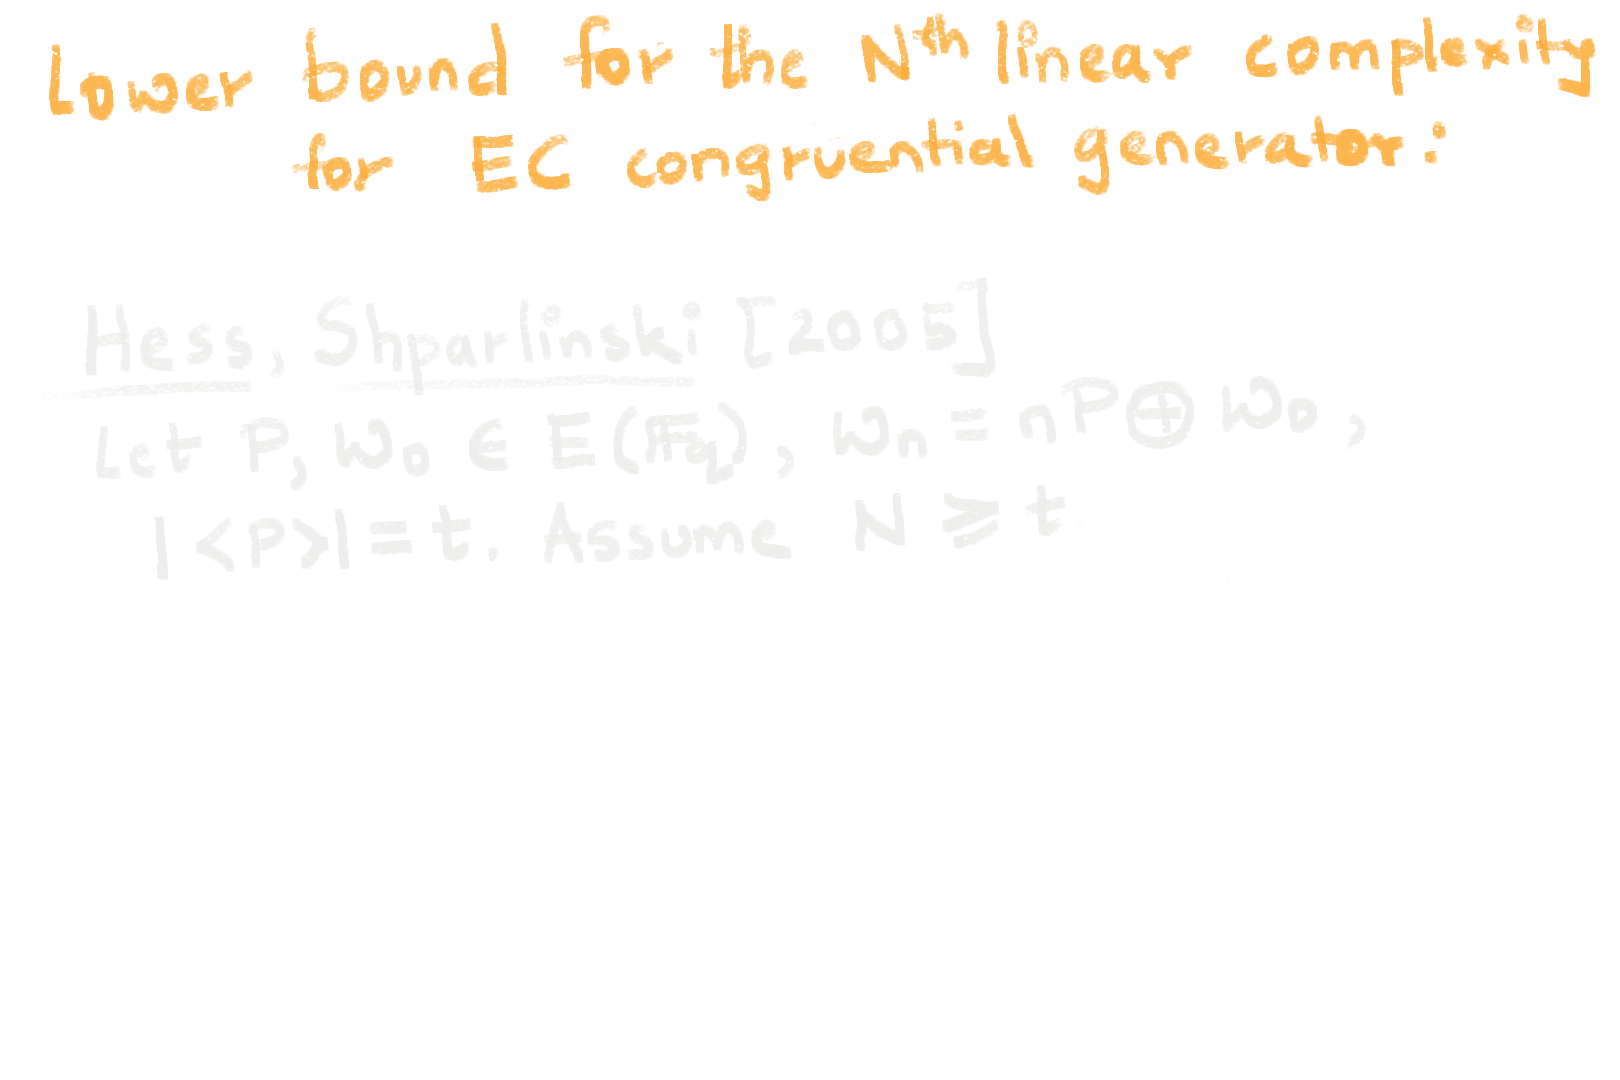 Lower bound for the Nth linear complexity
for EC congruential generator:
Hess, Shparlinski [2005]
Let P, W₀ ∈ E(𝔽q), Wn = nP ⊕ W₀,
|<P>| = t. Assume N ≥ t